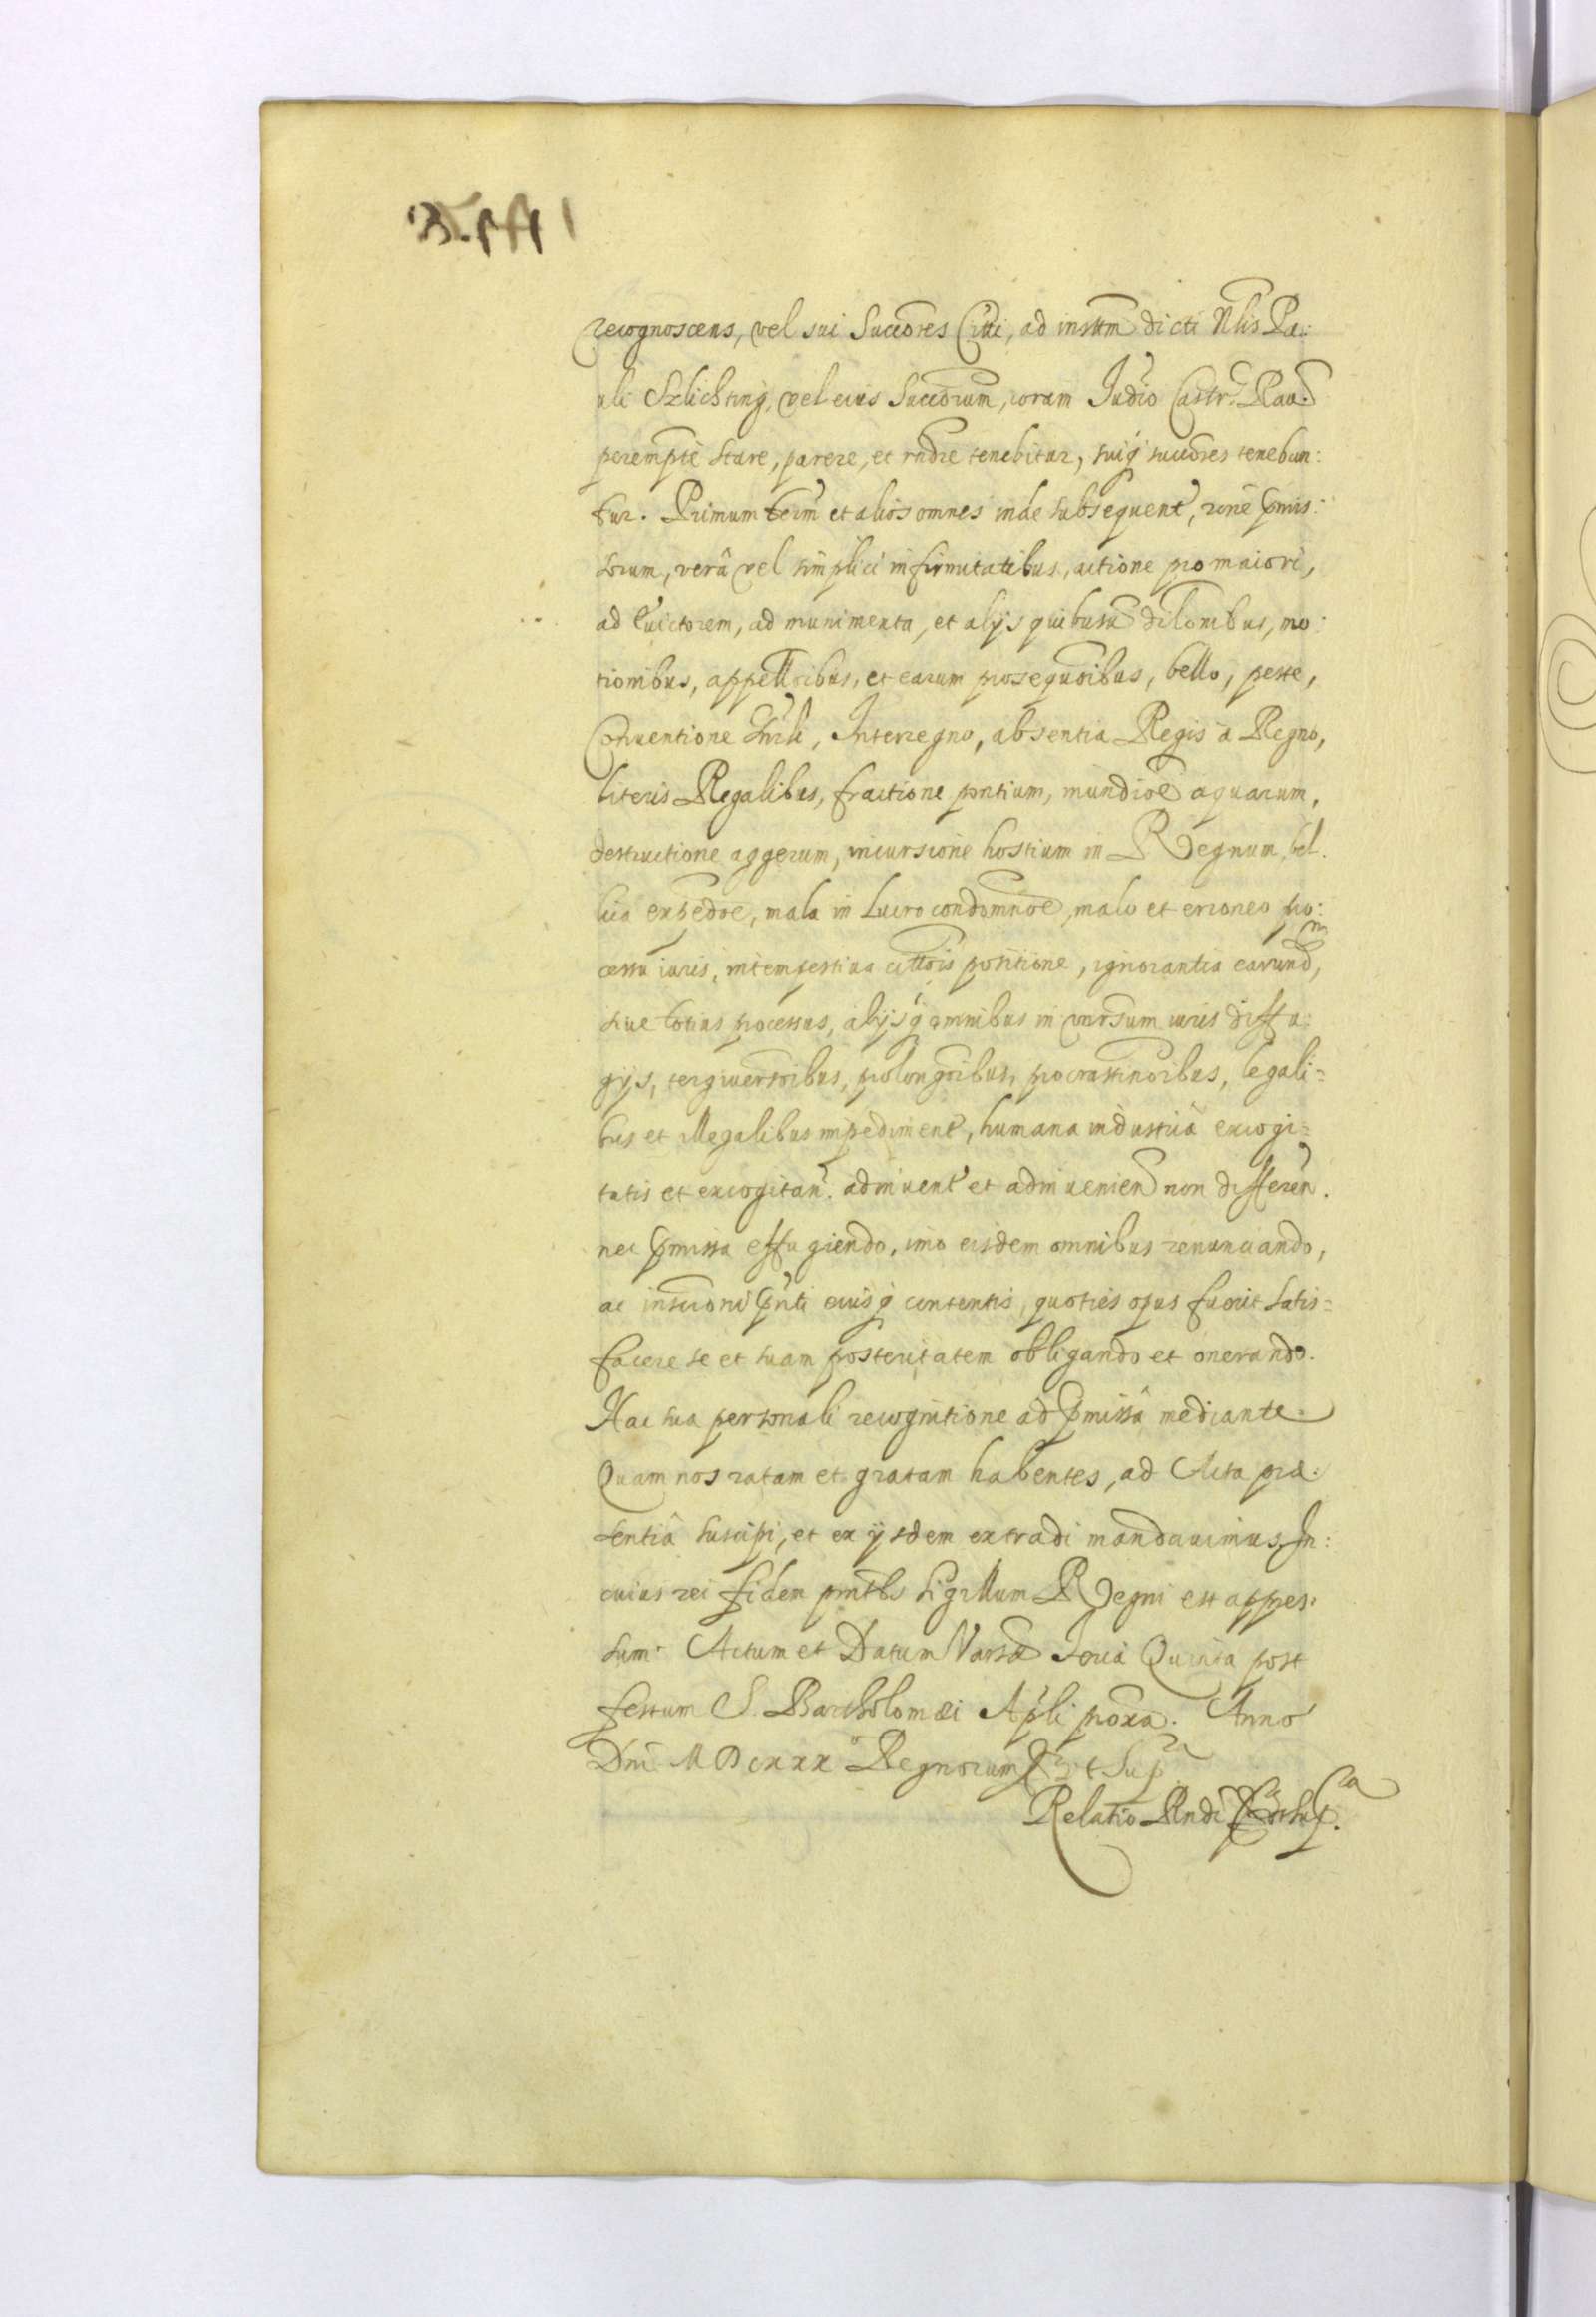 recognoscens, vel sui Succōres Citāti, ad instm̄ dicti Nlis Pa:
uli Szlichting, vel eius Succōrum, coram Iudīo Castr. Rau.
perempte stare, parere, et rndre tenebitur, suiq; succōres tenebun:
tur. Primum term et alios omnes inde subsequent, rōne pmis:
sorum, verâ vel simplici infirmitatibus, actione pro maiori,
ad Euictorem, ad munimenta, et alijs quibusu dilōnibus, mo:
tionibus, appellōibus, et earum prosequōibus, bello, peste,
Conuentione Gnrli, Interregno, absentia Regis à Regno,
literis Regalibus, fractione pontium, inundiōe aquarum,
destructione aggerum, incursione hostium in Regnum, bel.
lica expedōe, mala in Lucro condemnōe, malo et erroneo pro:
cessu iuris, intempestiua cittōis positione, ignorantia earund,
siue totius processus, alijsq; omnibus in vnrsum iuris diffu:
gijs, tergiuersōibus, prolongōibus, procrastinōibus, legali=
bus et illegalibus impediment, humana industria excogi=
tatis et excogitan. adinuent et adinuenien non differen.
nec pmissa effugiendo, imo eisdem omnibus renunciando,
ac inscrōni pnti eiusq; contentis, quoties opus fuerit satis=
facere se et suam posteritatem obligando et onerando.
Hac sua personali recognitione ad pmissa mediante.
Quam nos ratam et gratam habentes, ad Acta præ:
sentia suscipi, et ex ijsdem extradi mandauimus, In:
cuius rei fidem pntbs Sigillum Regni est appres:
sum. Actum et Datum Varsæ Feria Quinta post
festum S. Bartholomæi Apli proxa. Anno
Dni MDCXXXº Regnorum ut Supra
Relatio Rndi ut sup.ra